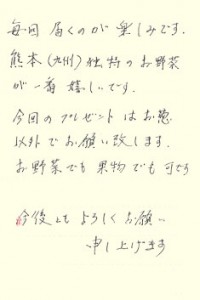 毎回 届くのが 楽しみです。
熊本(九州)独特のお野菜
が一番嬉しいです。
今回のプレゼントはお魚
以外でお願い致します。
お野菜でも果物でも可です
今後ともよろしくお願い
申し上げます